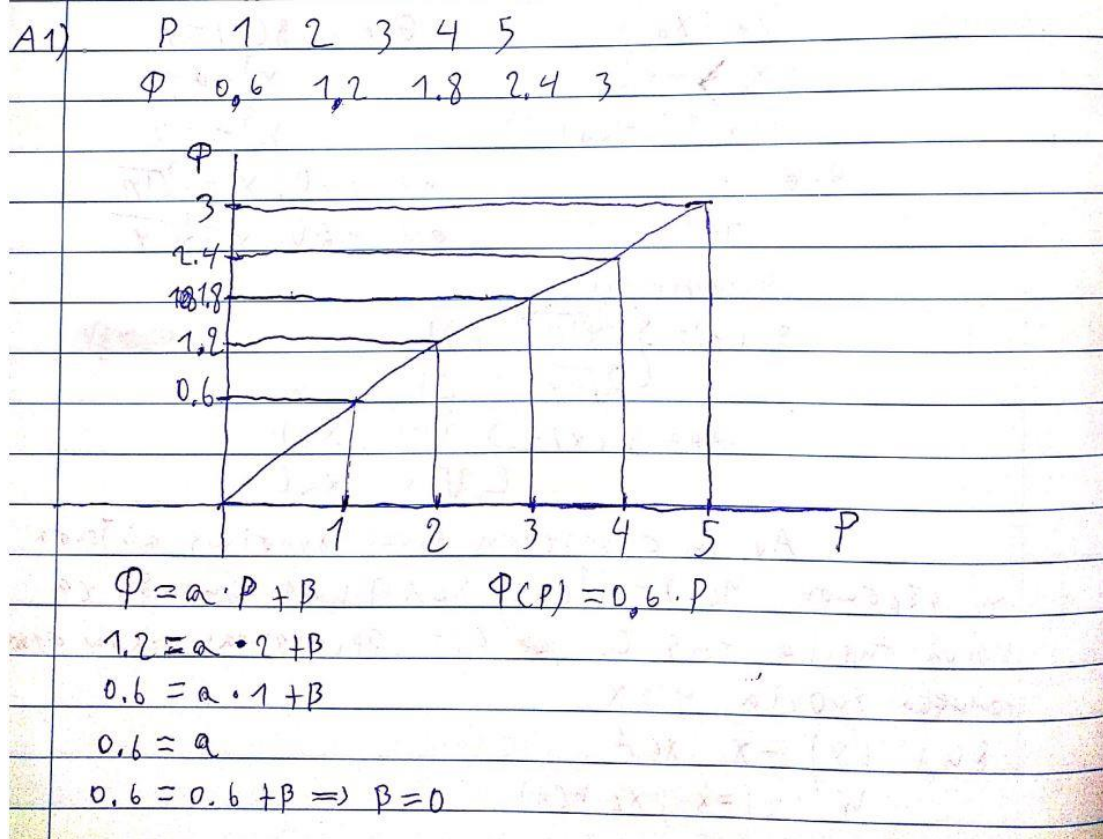 A1) P 1 2 3 4 5
Φ 0,6 1,2 1.8 2.4 3
Φ
3
2.4
1.8
1,2
0.6
1 2 3 4 5 P
Φ = a · P + β Φ(P) = 0,6 · P
1.2 = a · 2 + β
0.6 = a · 1 + β
0.6 = a
0.6 = 0.6 + β => β = 0